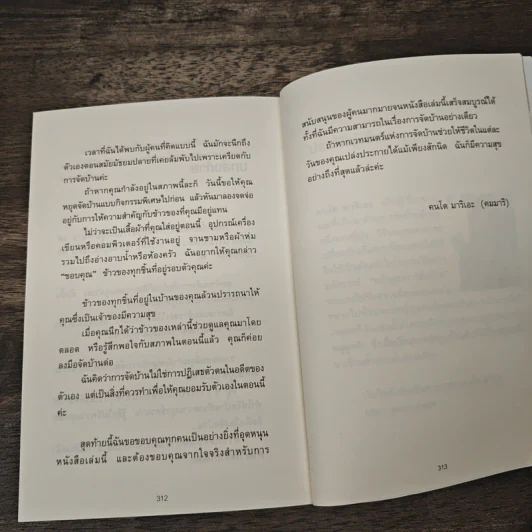 เวลาที่ฉันได้พบกับผู้คนที่คิดแบบนี้ ฉันมักจะนึกถึง
ตัวเองตอนสมัยมัธยมปลายที่เคยล้มพับไปเพราะเครียดกับ
การจัดบ้านค่ะ
ถ้าหากคุณกำลังอยู่ในสภาพนี้ละก็ วันนี้ขอให้คุณ
หยุดจัดบ้านแบบกิจกรรมพิเศษไปก่อน แล้วหันมาลองจดจ่อ
อยู่กับการให้ความสำคัญกับข้าวของที่คุณมีอยู่แทน
ไม่ว่าจะเป็นเสื้อผ้าที่คุณใส่อยู่ตอนนี้ อุปกรณ์เครื่อง
เขียนหรือคอมพิวเตอร์ที่ใช้งานอยู่ จานชามหรือผ้าห่ม
รวมไปถึงอ่างอาบน้ำหรือห้องครัว ฉันอยากให้คุณกล่าว
“ขอบคุณ” ข้าวของทุกชิ้นที่อยู่รอบตัวคุณค่ะ
ข้าวของทุกชิ้นที่อยู่ในบ้านของคุณล้วนปรารถนาให้
คุณซึ่งเป็นเจ้าของมีความสุข
เมื่อคุณนึกได้ว่าข้าวของเหล่านี้ช่วยดูแลคุณมาโดย
ตลอด หรือรู้สึกพอใจกับสภาพในตอนนี้แล้ว คุณก็ค่อย
ลงมือจัดบ้านต่อ
ฉันคิดว่าการจัดบ้านไม่ใช่การปฏิเสธตัวตนในอดีตของ
ตัวเอง แต่เป็นสิ่งที่ควรทำเพื่อให้คุณยอมรับตัวเองในตอนนี้
ค่ะ
สุดท้ายนี้ฉันขอขอบคุณทุกคนเป็นอย่างยิ่งที่อุดหนุน
หนังสือเล่มนี้ และต้องขอบคุณจากใจจริงสำหรับการ
312
สนับสนุนของผู้คนมากมายจนหนังสือเล่มนี้เสร็จสมบูรณ์ได้
ทั้งที่ฉันมีความสามารถในเรื่องการจัดบ้านอย่างเดียว
ถ้าหากเวทมนตร์แห่งการจัดบ้านช่วยให้ชีวิตในแต่ละ
วันของคุณเปล่งประกายได้แม้เพียงสักนิด ฉันก็มีความสุข
อย่างถึงที่สุดแล้วล่ะค่ะ
คนโด มาริเอะ (คมมาริ)
313